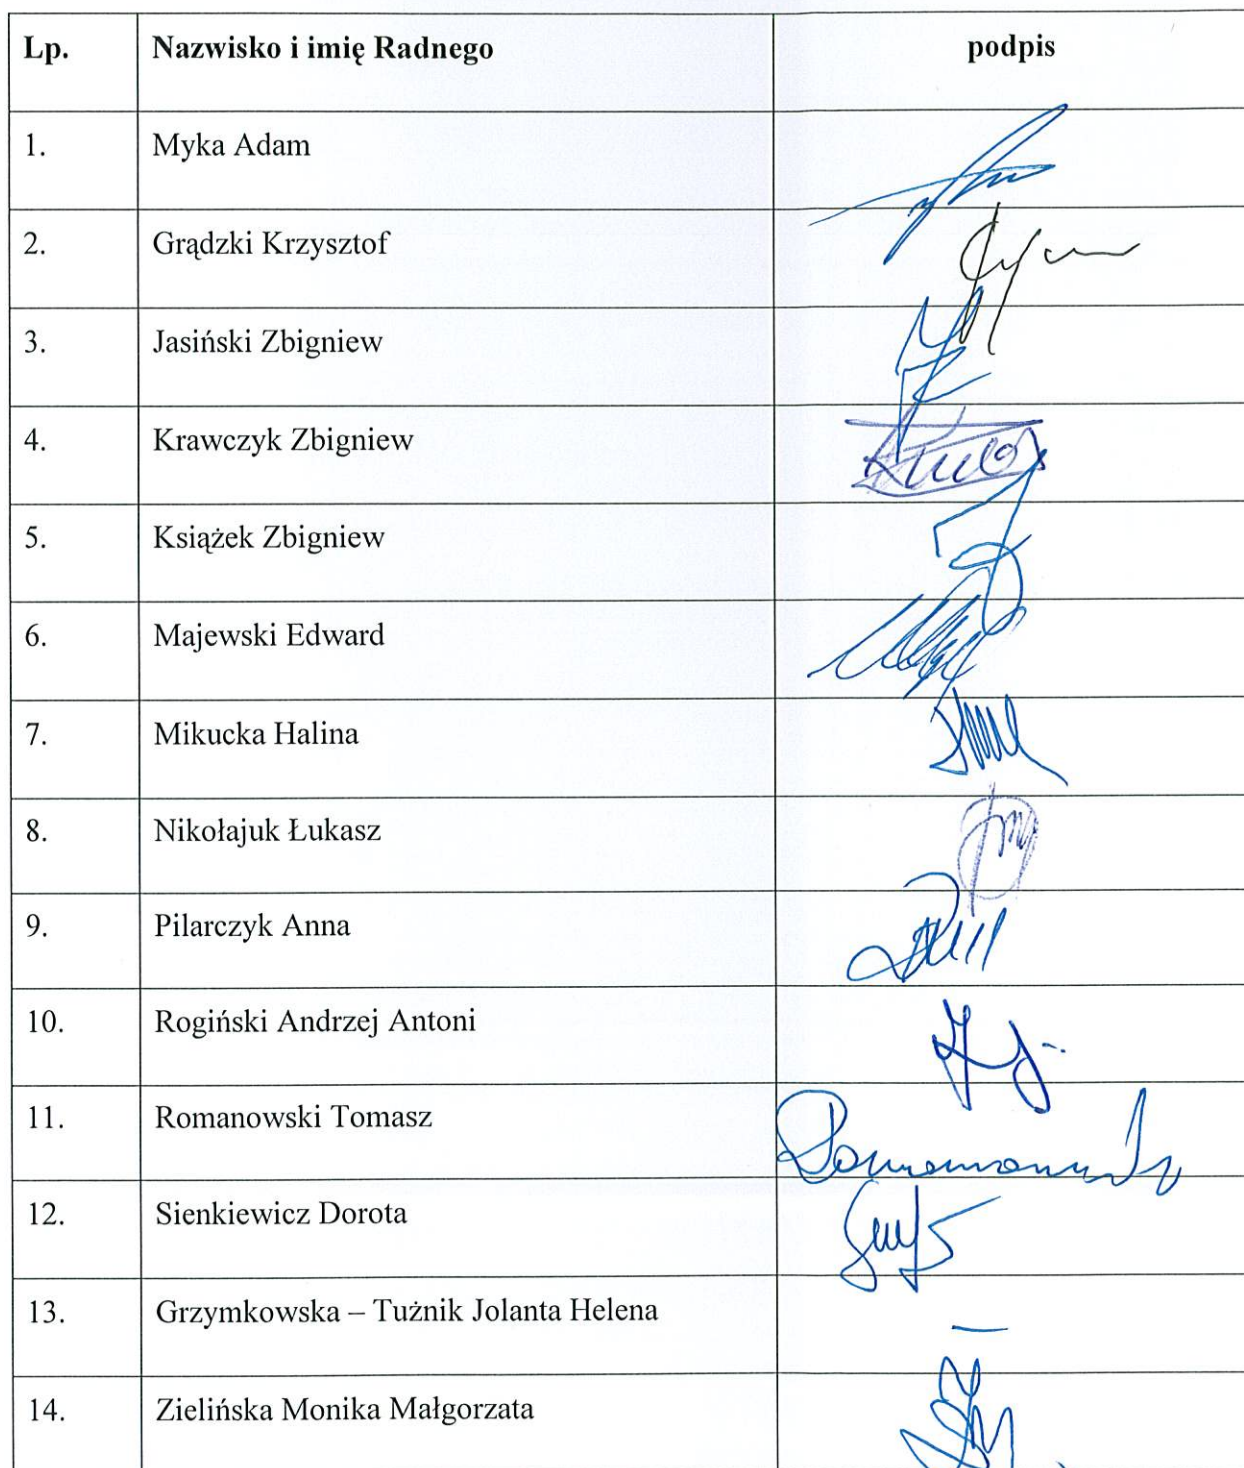 Lp. Nazwisko i imię Radnego podpis
1. Myka Adam
2. Grądzki Krzysztof
3. Jasiński Zbigniew
4. Krawczyk Zbigniew
5. Książek Zbigniew
6. Majewski Edward
7. Mikucka Halina
8. Nikołajuk Łukasz
9. Pilarczyk Anna
10. Rogiński Andrzej Antoni
11. Romanowski Tomasz
12. Sienkiewicz Dorota
13. Grzymkowska – Tużnik Jolanta Helena –
14. Zielińska Monika Małgorzata